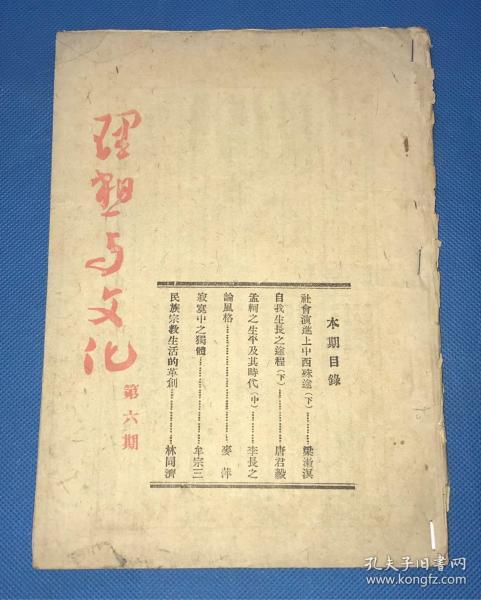 理想与文化
第六期
本期目錄
社會演進上中西殊途（下）……梁漱溟
自我生長之途程（下）……唐君毅
孟軻之生平及其時代（中）……李長之
論風格……麥萍
寂寞中之獨體……牟宗三
民族宗教生活的革創……林同濟
孔夫子旧书网
www.kongfz.com